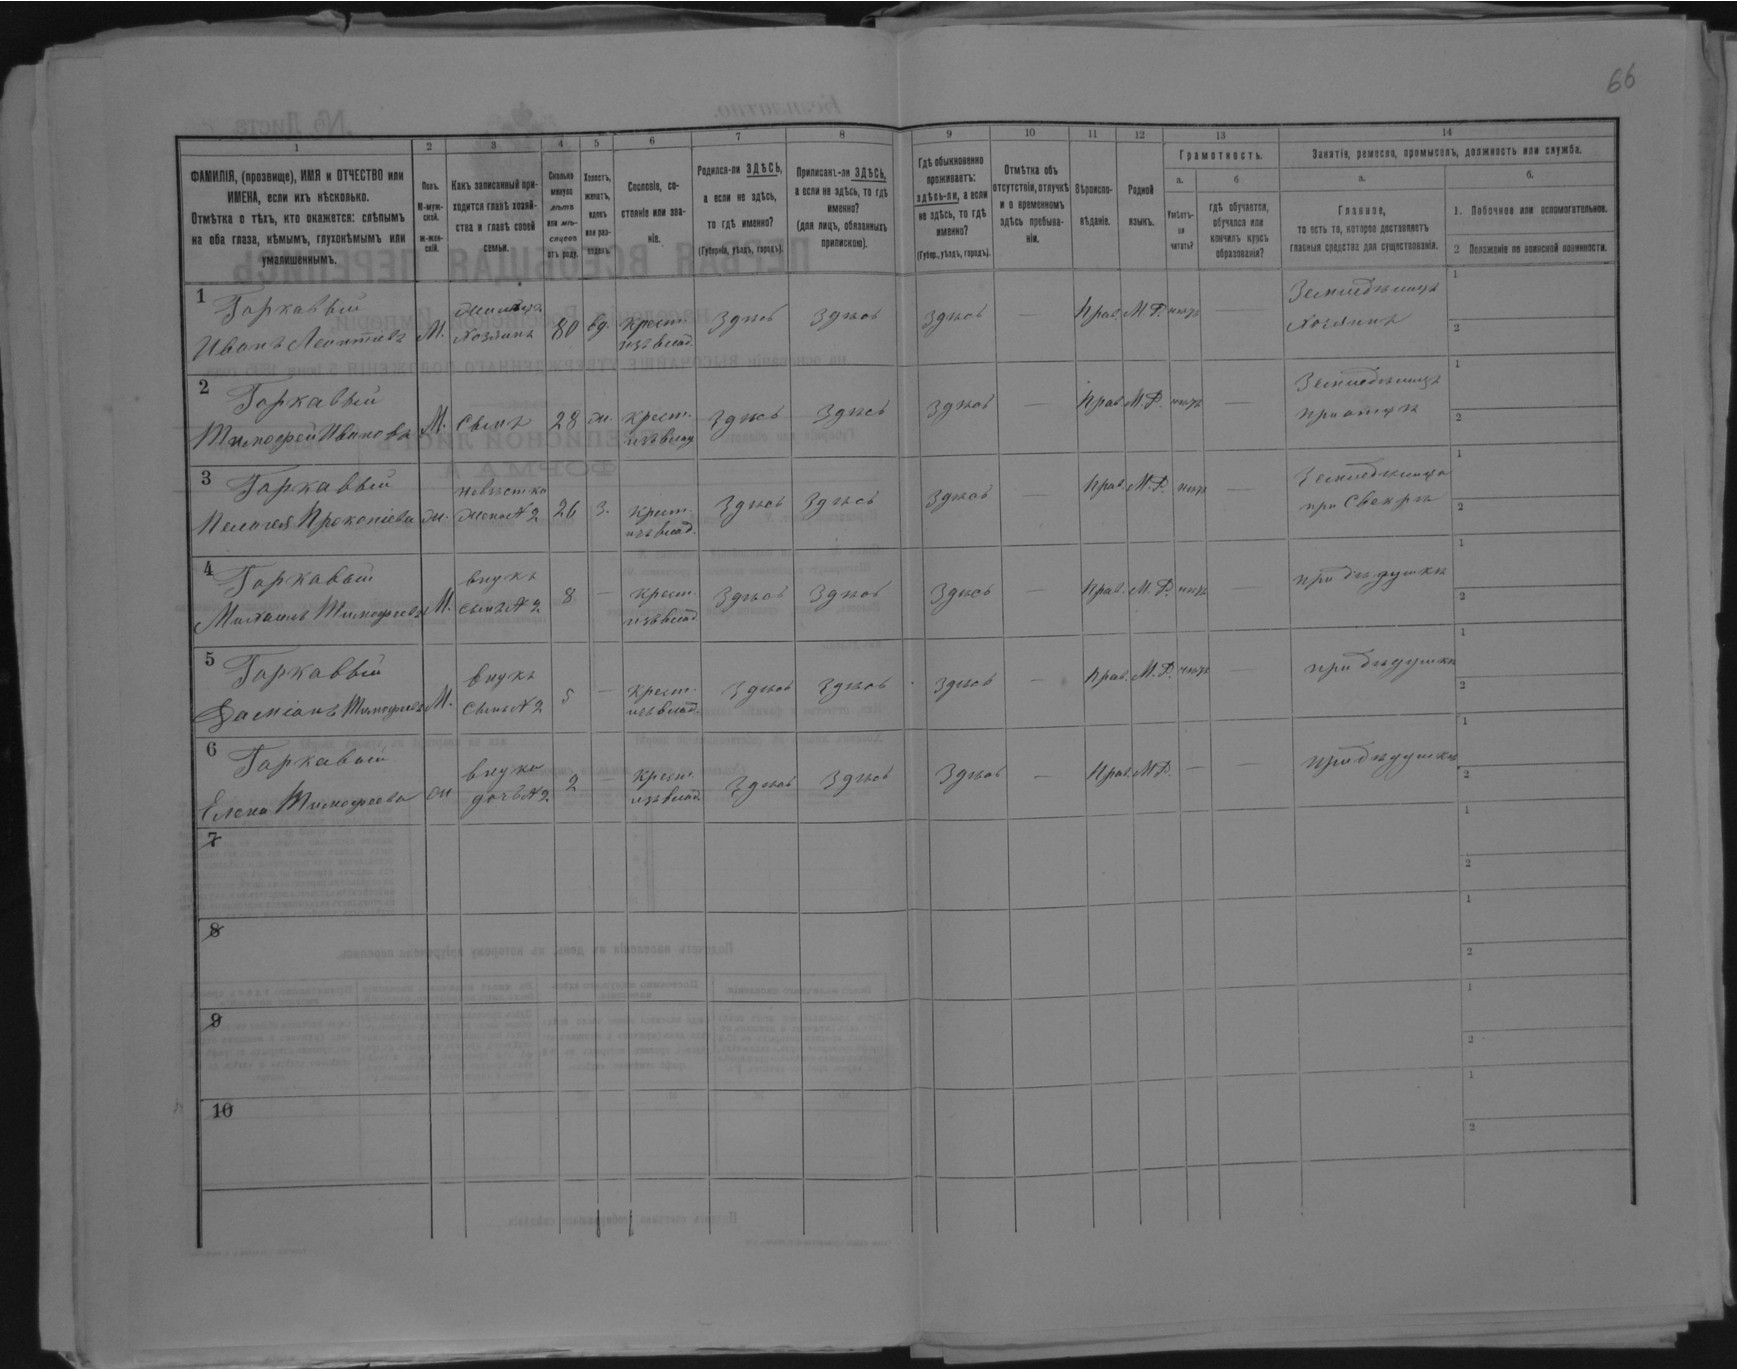 66
1
2
3
4
5
6
7
8
9
10
11
12
13
14
ФАМИЛІЯ, (прозвище), ИМЯ и ОТЧЕСТВО или
ИМЕНА, если ихъ нѣсколько.
Отмѣтка о тѣхъ, кто окажется: слѣпымъ
на оба глаза, нѣмымъ, глухонѣмымъ или
умалишеннымъ.
Полъ.
М-муж-
ской.
ж-жен-
скій.
Какъ записанный при-
ходится главѣ хозяй-
ства и главѣ своей
семьи.
Сколько
минуло
лѣтъ
или мѣ-
сяцевъ
отъ роду.
Холостъ,
женатъ,
вдовъ
или раз-
веденъ.
Сословіе, со-
стояніе или зва-
ніе.
Родился-ли ЗДѢСЬ,
а если не здѣсь,
то гдѣ именно?
(Губернія, уѣздъ, городъ).
Приписанъ-ли ЗДѢСЬ,
а если не здѣсь, то гдѣ
именно?
(для лицъ, обязанныхъ
припискою).
Гдѣ обыкновенно
проживаетъ:
здѣсь-ли, а если
не здѣсь, то гдѣ
именно?
(Губер., уѣздъ, городъ).
Отмѣтка объ
отсутствіи, отлучкѣ
и о временномъ
здѣсь пребыва-
ніи.
Вѣроиспо-
вѣданіе.
Родной
языкъ.
Грамотность.
а.
Умѣетъ-
ли
читать?
б
гдѣ обучается,
обучался или
кончилъ курсъ
образованія?
Занятіе, ремесло, промыселъ, должность или служба.
а.
Главное,
то есть то, которое доставляетъ
главныя средства для существованія.
б.
1. Побочное или вспомогательное.
2 Положеніе по воинской повинности.
1
Гаркавый
Иванъ Леонтіевъ
М.
Хозяинъ
80
вд.
крест.
изъ влад.
Здѣсь
Здѣсь
Здѣсь
—
Прав.
М. Р.
нѣтъ
—
Земледѣлецъ
хозяинъ
1
2
2
Гаркавый
Тимофей Ивановъ
М.
Сынъ
28
ж.
крест.
изъ влад.
Здѣсь
Здѣсь
Здѣсь
—
Прав.
М. Р.
нѣтъ
—
Земледѣлецъ
при отцѣ
1
2
3
Гаркавый
Пелагея Прокопіева
ж.
невѣстка
жена № 2
26
з.
крест.
изъ влад.
Здѣсь
Здѣсь
Здѣсь
—
Прав.
М. Р.
нѣтъ
—
Земледѣлица
при Свекрѣ
1
2
4
Гаркавый
Михаилъ Тимофеевъ
М.
внукъ
сынъ № 2
8
—
крест.
изъ влад.
Здѣсь
Здѣсь
Здѣсь
—
Прав.
М. Р.
нѣтъ
при дѣдушкѣ
1
2
5
Гаркавый
Даміанъ Тимофеевъ
М.
внукъ
Сынъ № 2
5
—
крест.
изъ влад.
Здѣсь
Здѣсь
Здѣсь
—
Прав.
М. Р.
нѣтъ
—
при дѣдушкѣ
1
2
6
Гаркавый
Елена Тимофеева
ж
внука
дочь № 2
2
крест.
изъ влад.
Здѣсь
Здѣсь
Здѣсь
—
Прав.
М. Р.
—
—
при дѣдушкѣ
1
2
7
1
2
8
1
2
9
1
2
10
1
2